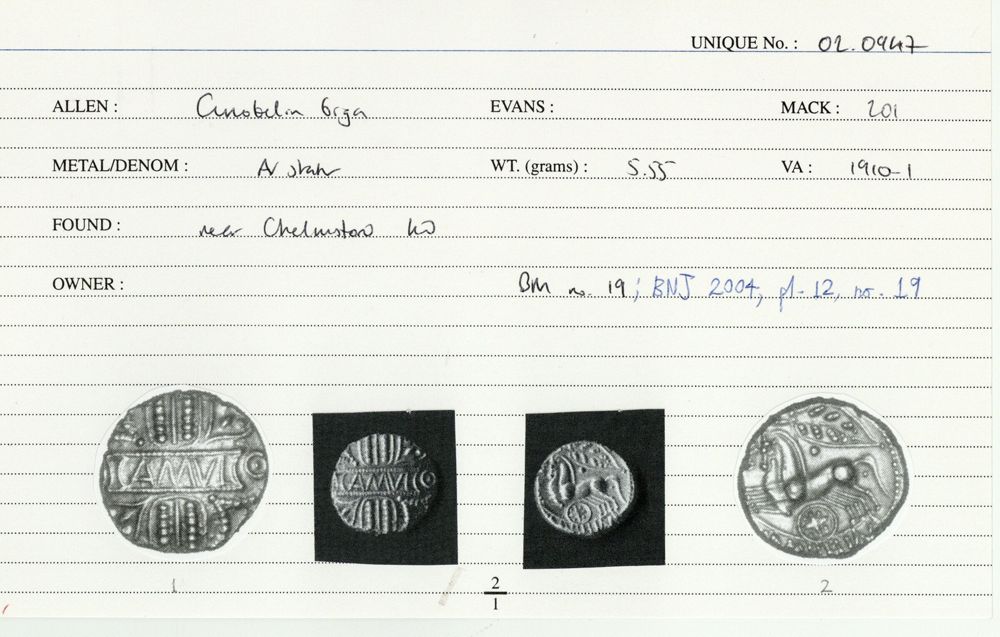 UNIQUE No. : 02.0947
ALLEN : Cunobelin biga EVANS : MACK : 201
METAL/DENOM : AV stater WT. (grams) : 5.55 VA : 1910-1
FOUND : near Chelmsford
OWNER : BM no. 19; BNJ 2004, pl. 12, no. 19
CAMVI CAMVI
1 2 2
1